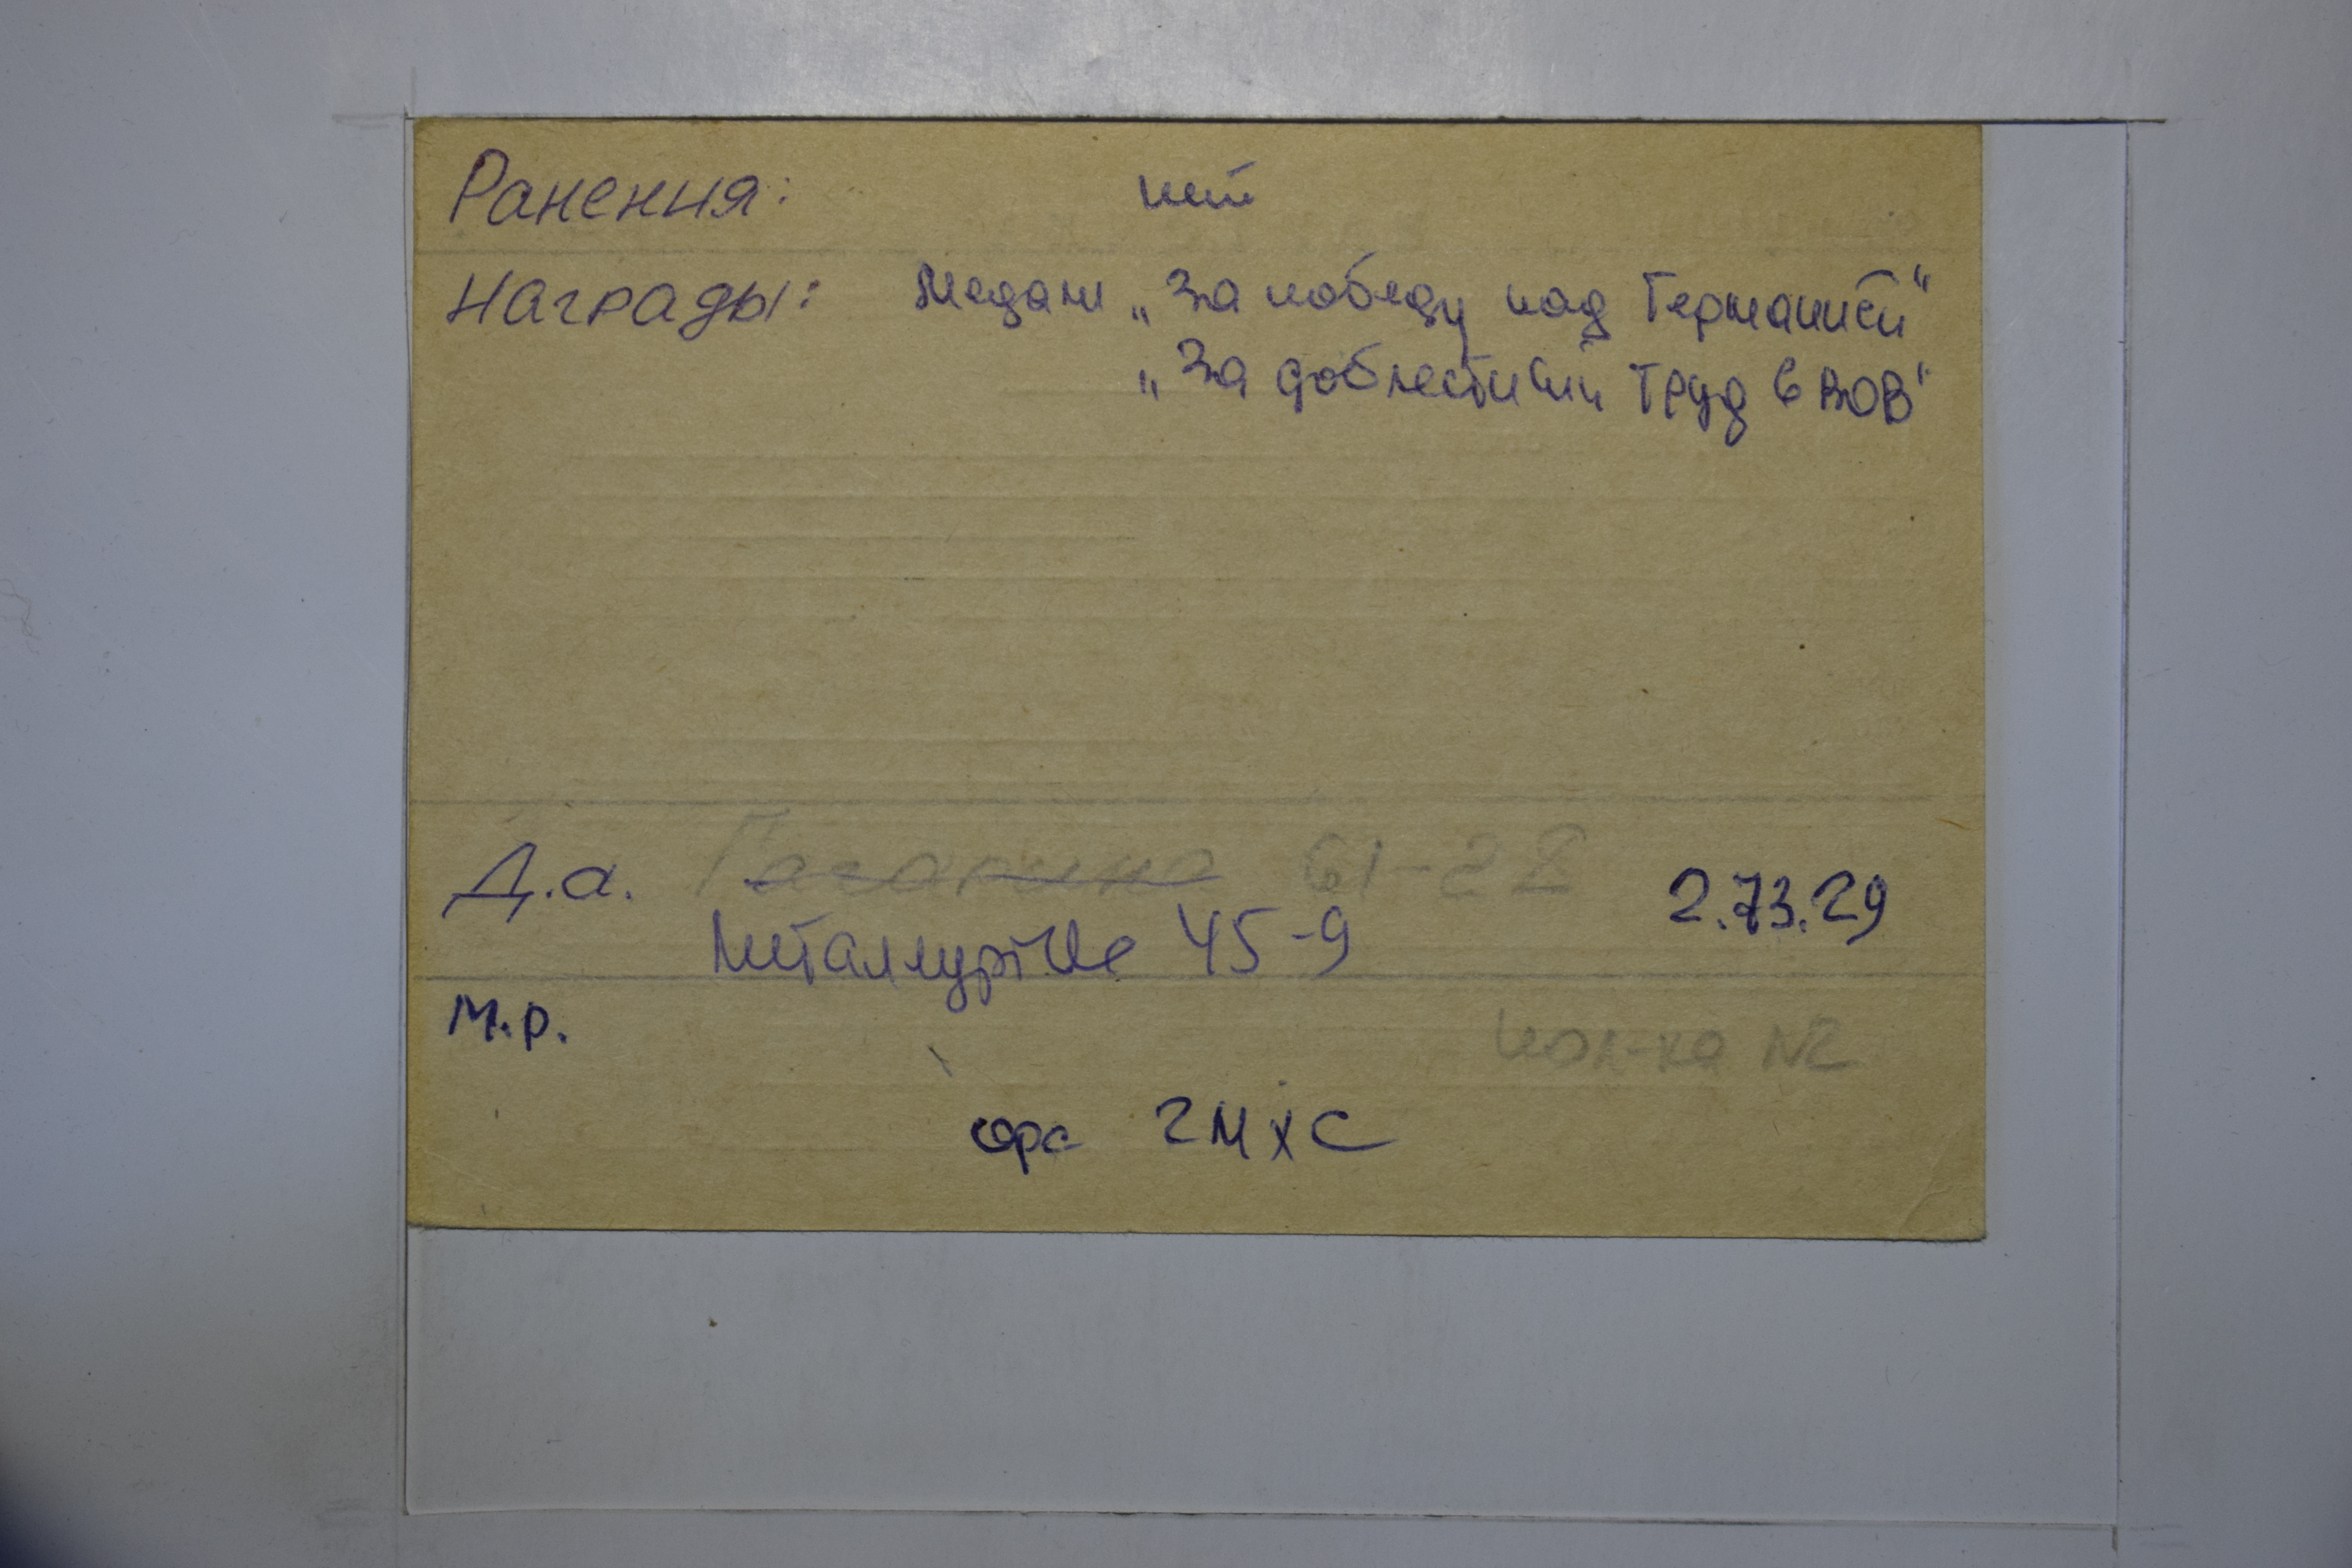 Ранения: нет
Награды: Медали „За победу над Германией"
„За доблестный труд в ВОВ"
Д.а. Гагарина 61-28 2.73.29
Металлургов 45-9
М.р.
пол-ка №2
2МХС